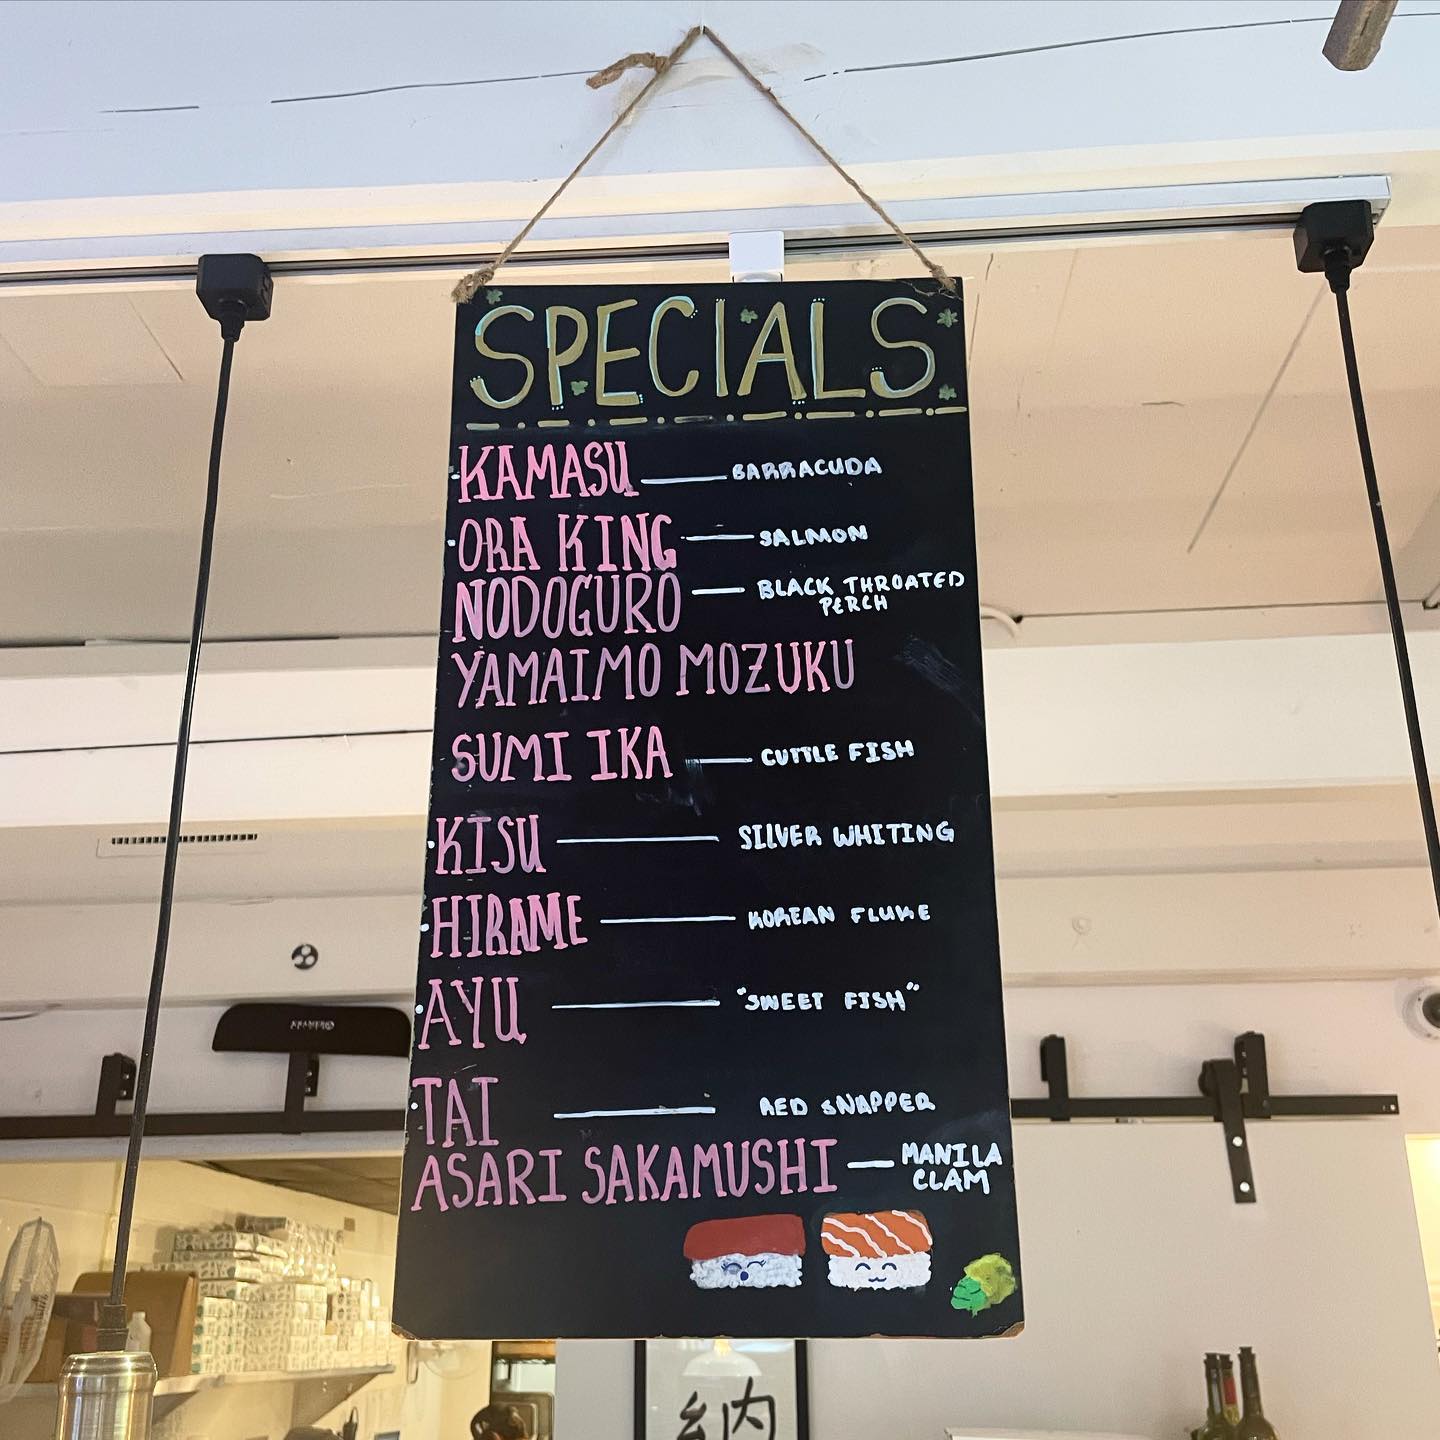 SPECIALS
KAMASU — BARRACUDA
ORA KING — SALMON
NODOGURO — BLACK THROATED
PERCH
YAMAIMO MOZUKU
SUMI IKA — CUTTLE FISH
KISU — SILVER WHITING
HIRAME — KOREAN FLUKE
AYU — "SWEET FISH"
TAI — RED SNAPPER
ASARI SAKAMUSHI — MANILA
CLAM
納